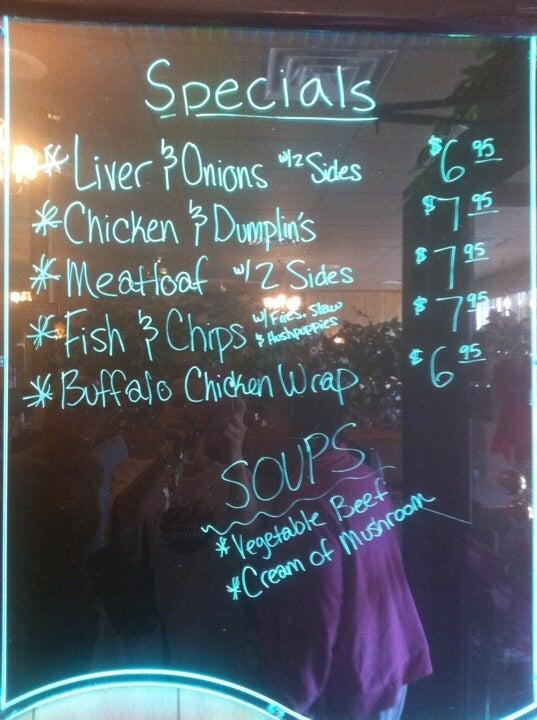 Specials
* Liver & Onions w/2 Sides $6.95
* Chicken & Dumplin's $7.95
* Meatloaf w/2 Sides $7.95
* Fish & Chips w/ Fries, Slaw & Hushpuppies $7.95
* Buffalo Chicken Wrap $6.95
SOUPS
* Vegetable Beef
* Cream of Mushroom